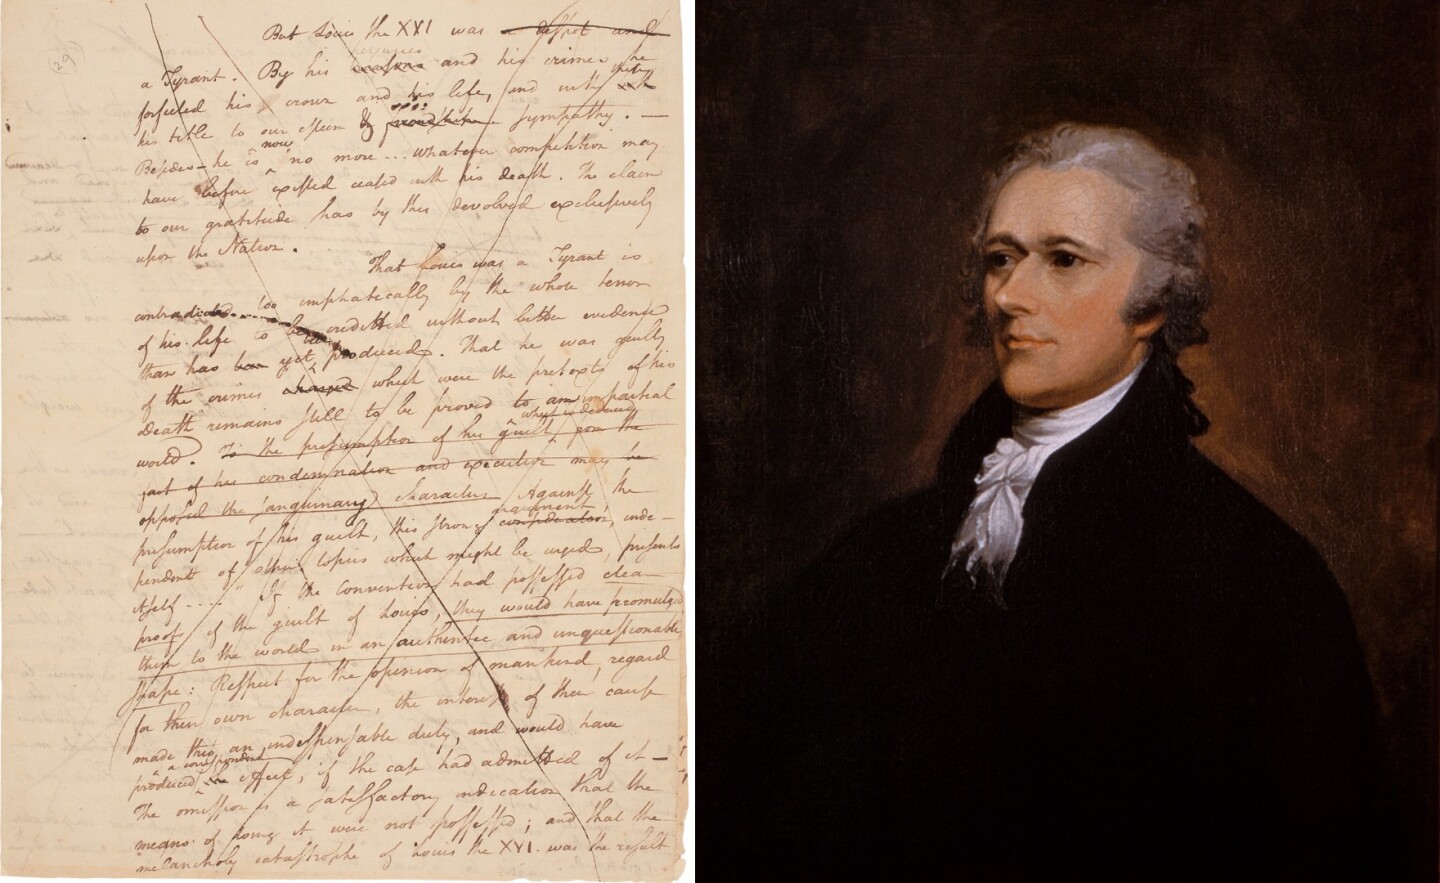 (29)
But Louis the XVI was a despot and
a Tyrant. By his and his crimes he
forfeited his crown and his life, and with them
his title to our esteem & sympathy. —
Besides — he is now no more ... whatever competition may
have before existed ceased with his death. The claim
to our gratitude has by this devolved exclusively
upon the Nation.
That Louis was a Tyrant is
contradicted too emphatically by the whole tenor
of his life to be creditted without better evidence
than has been yet produced. That he was guilty
of the crimes charged which were the pretexts of his
death remains still to be proved to an impartial
world. To the presumption of his guilt, which is deduced from the
fact of his condemnation and execution may be
opposed the sanguinary character Against the
presumption of his guilt, this strong argument consideration, inde-
pendent of other topics which might be urged, presents
itself .... "If the Convention had possessed clear
proof of the guilt of Louis, they would have promulged
them to the world in an authentic and unquestionable
shape: Respect for the opinion of mankind, regard
for their own character, the interest of their cause
made this an indispensable duty, and would have
produced a correspondent effect, if the case had admitted of it —
The omission is a satisfactory indication that the
means of doing it were not possessed; and that the
melancholy catastrophe of Louis the XVI. was the result